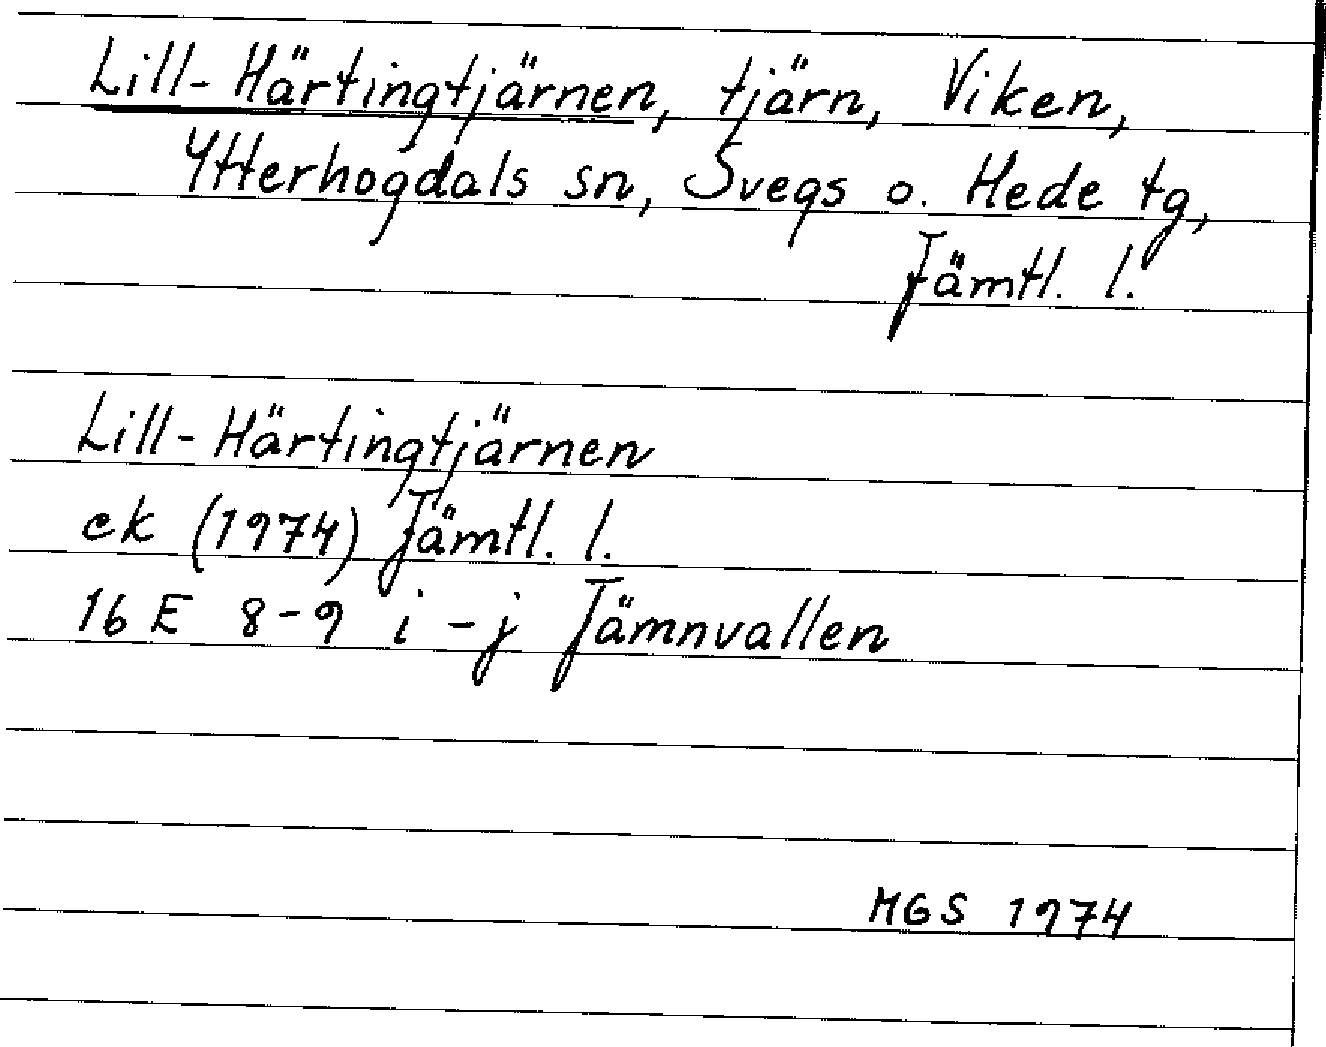 Lill-Härtingtjärnen, tjärn, Viken,
Ytterhogdals sn, Svegs o. Hede tg,
Jämtl. l.
Lill-Härtingtjärnen
ek (1974) Jämtl. l.
16 E 8-9 i-j Jämnvallen
MGS 1974